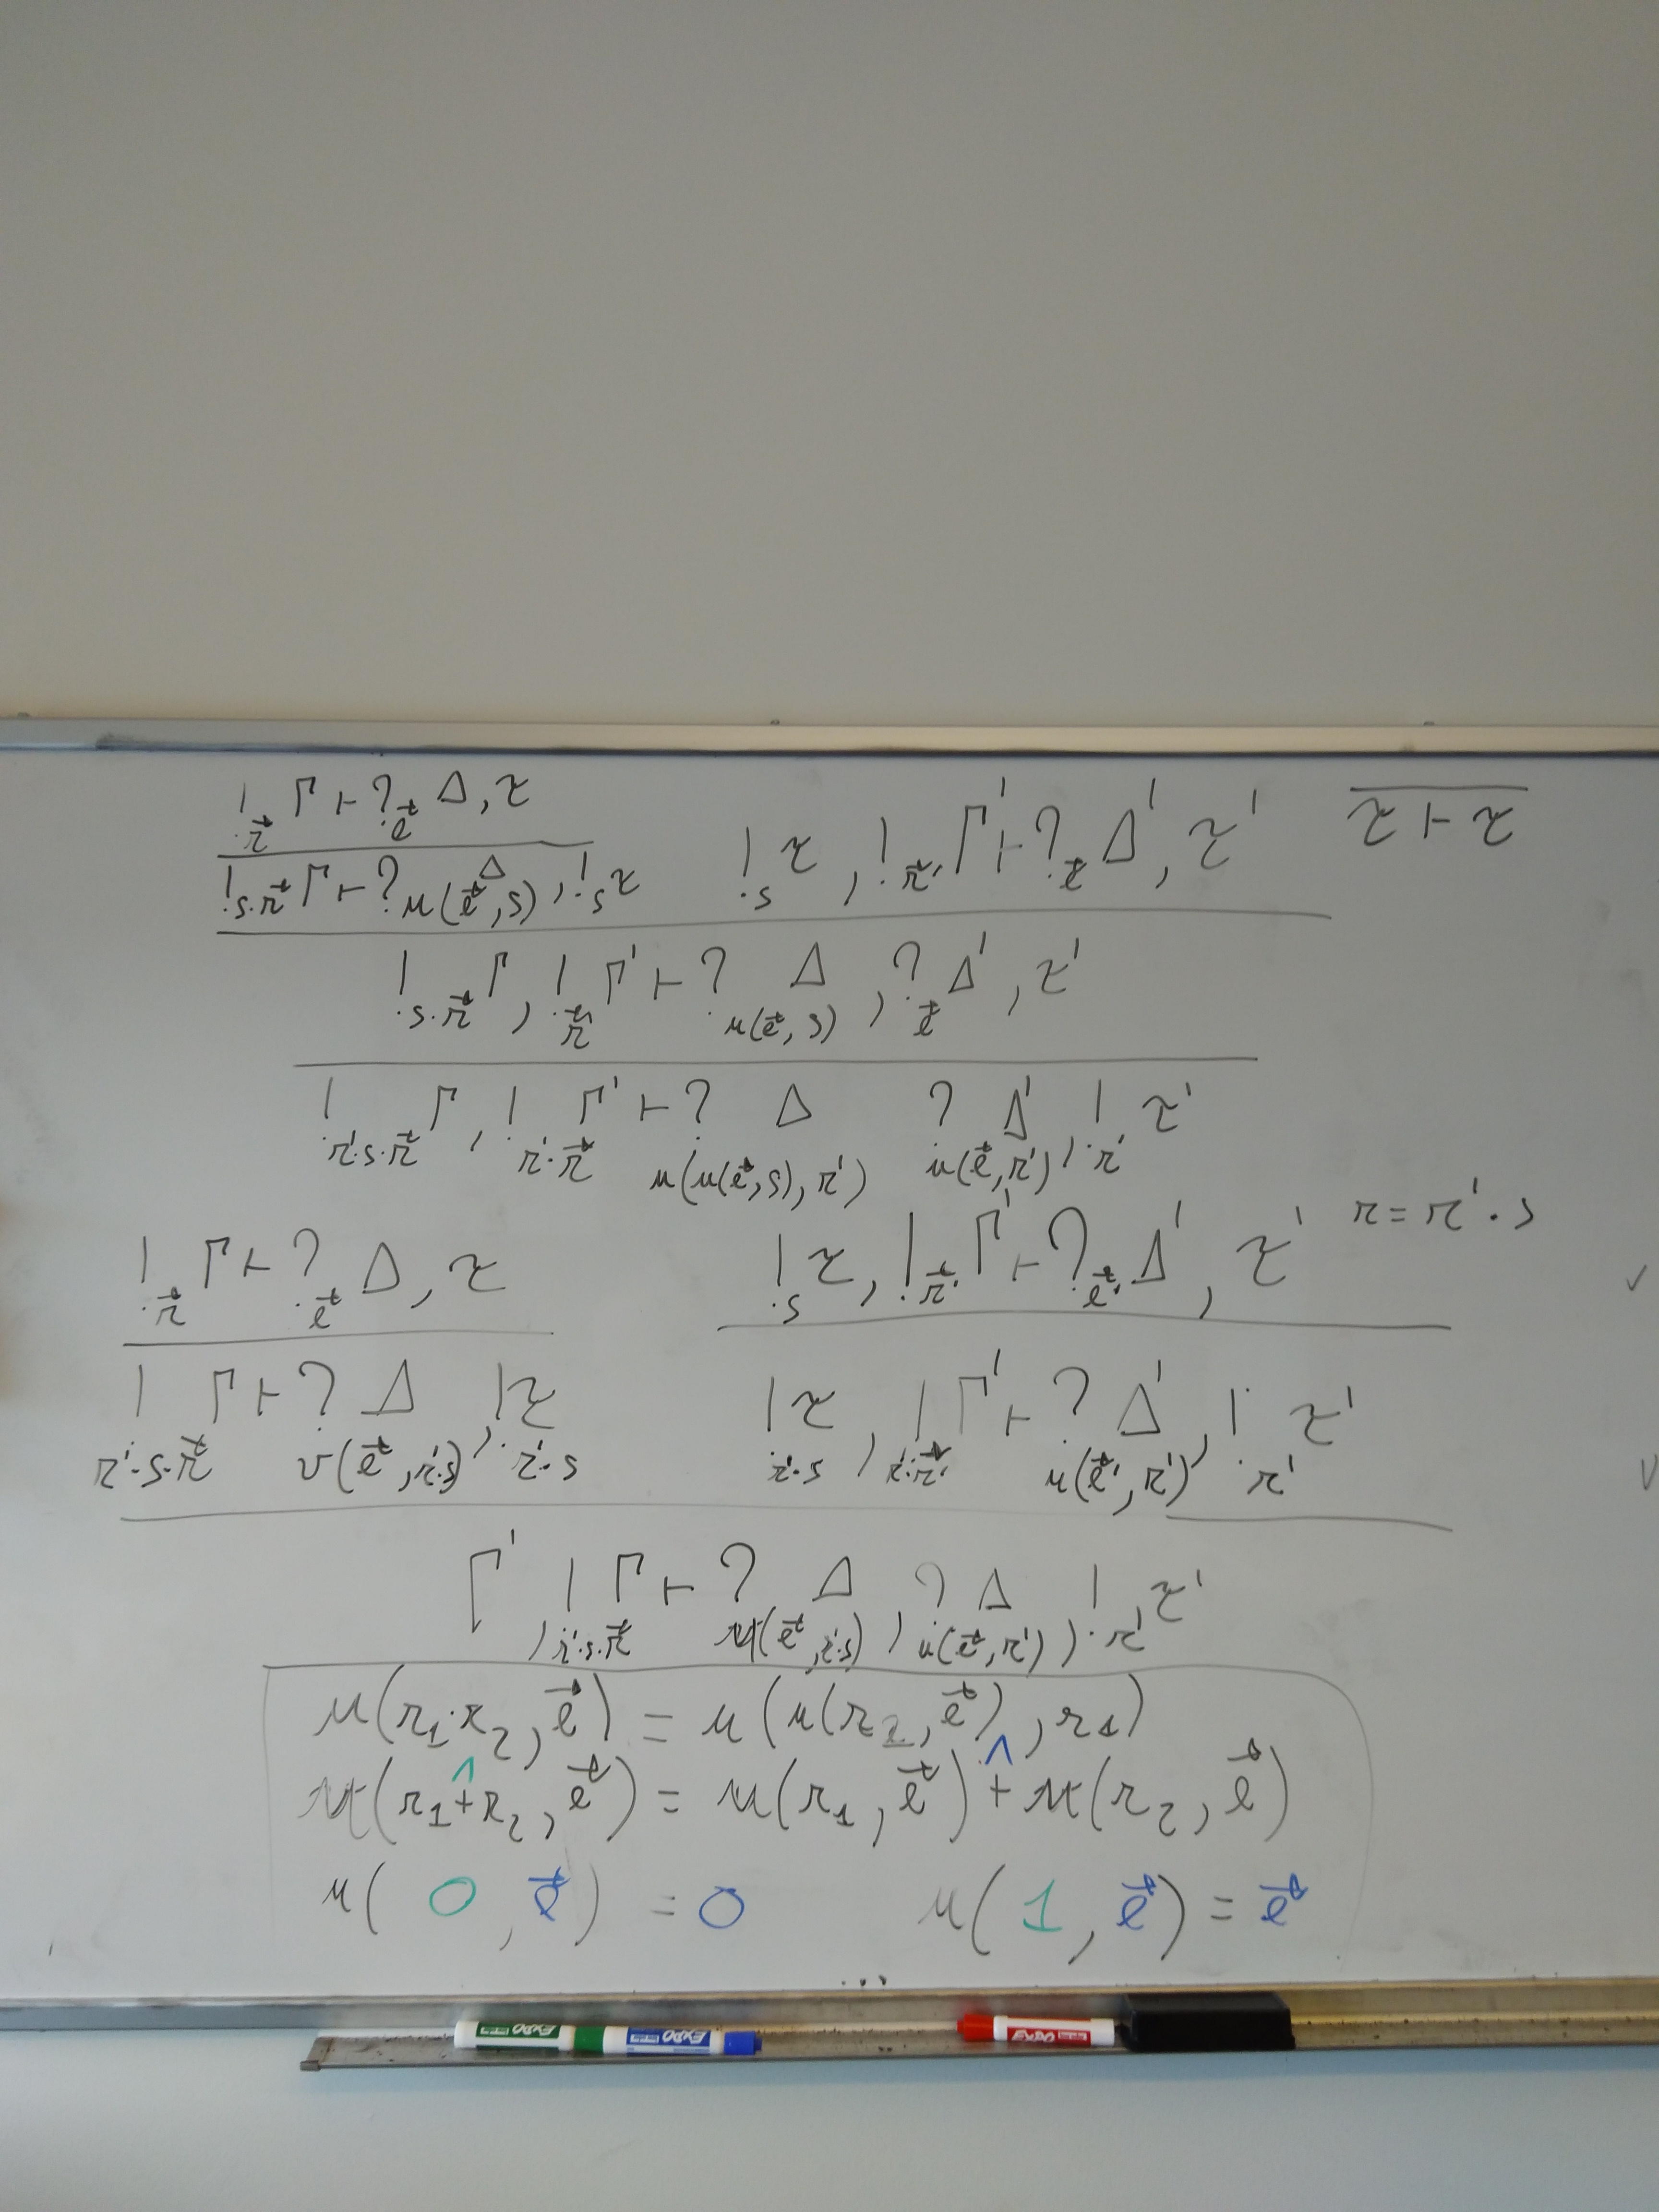 !_{r⃗} Γ ⊢ ?_{e⃗} Δ, τ
τ ⊢ τ
!_{s·r⃗} Γ ⊢ ?_{u(e⃗,s)} Δ, !_s τ    !_s τ, !_{r⃗'} Γ' ⊢ ?_{e⃗} Δ', τ'
!_{s·r⃗} Γ, !_{r⃗} Γ' ⊢ ?_{u(e⃗,s)} Δ, ?_{e⃗} Δ', τ'
!_{r'·s·r⃗} Γ, !_{r'·r⃗} Γ' ⊢ ?_{u(u(e⃗,s),r')} Δ ?_{u(e⃗,r')} Δ', !_{r'} τ'
r = r'·s
!_{r⃗} Γ ⊢ ?_{e⃗} Δ, τ    !_s τ, !_{r⃗'} Γ' ⊢ ?_{e⃗'} Δ', τ' ✓
!_{r'·s·r⃗} Γ ⊢ ?_{v(e⃗,r'·s)} Δ, !_{r'·s} τ    !_{r'·s} τ, !_{r'·r⃗'} Γ' ⊢ ?_{u(e⃗',r')} Δ', !_{r'} τ'
Γ', !_{r'·s·r⃗} Γ ⊢ ?_{u(e⃗,r'·s)} Δ, ?_{u(e⃗,r')} Δ, !_{r'} τ'
u(r₁·r₂, e⃗) = u(u(r₂, e⃗), r₁)
u(r₁ +^ r₂, e⃗) = u(r₁, e⃗) +^ u(r₂, e⃗)
u(0, e⃗) = 0    u(1, e⃗) = e⃗
EXPO EXPO EXPO